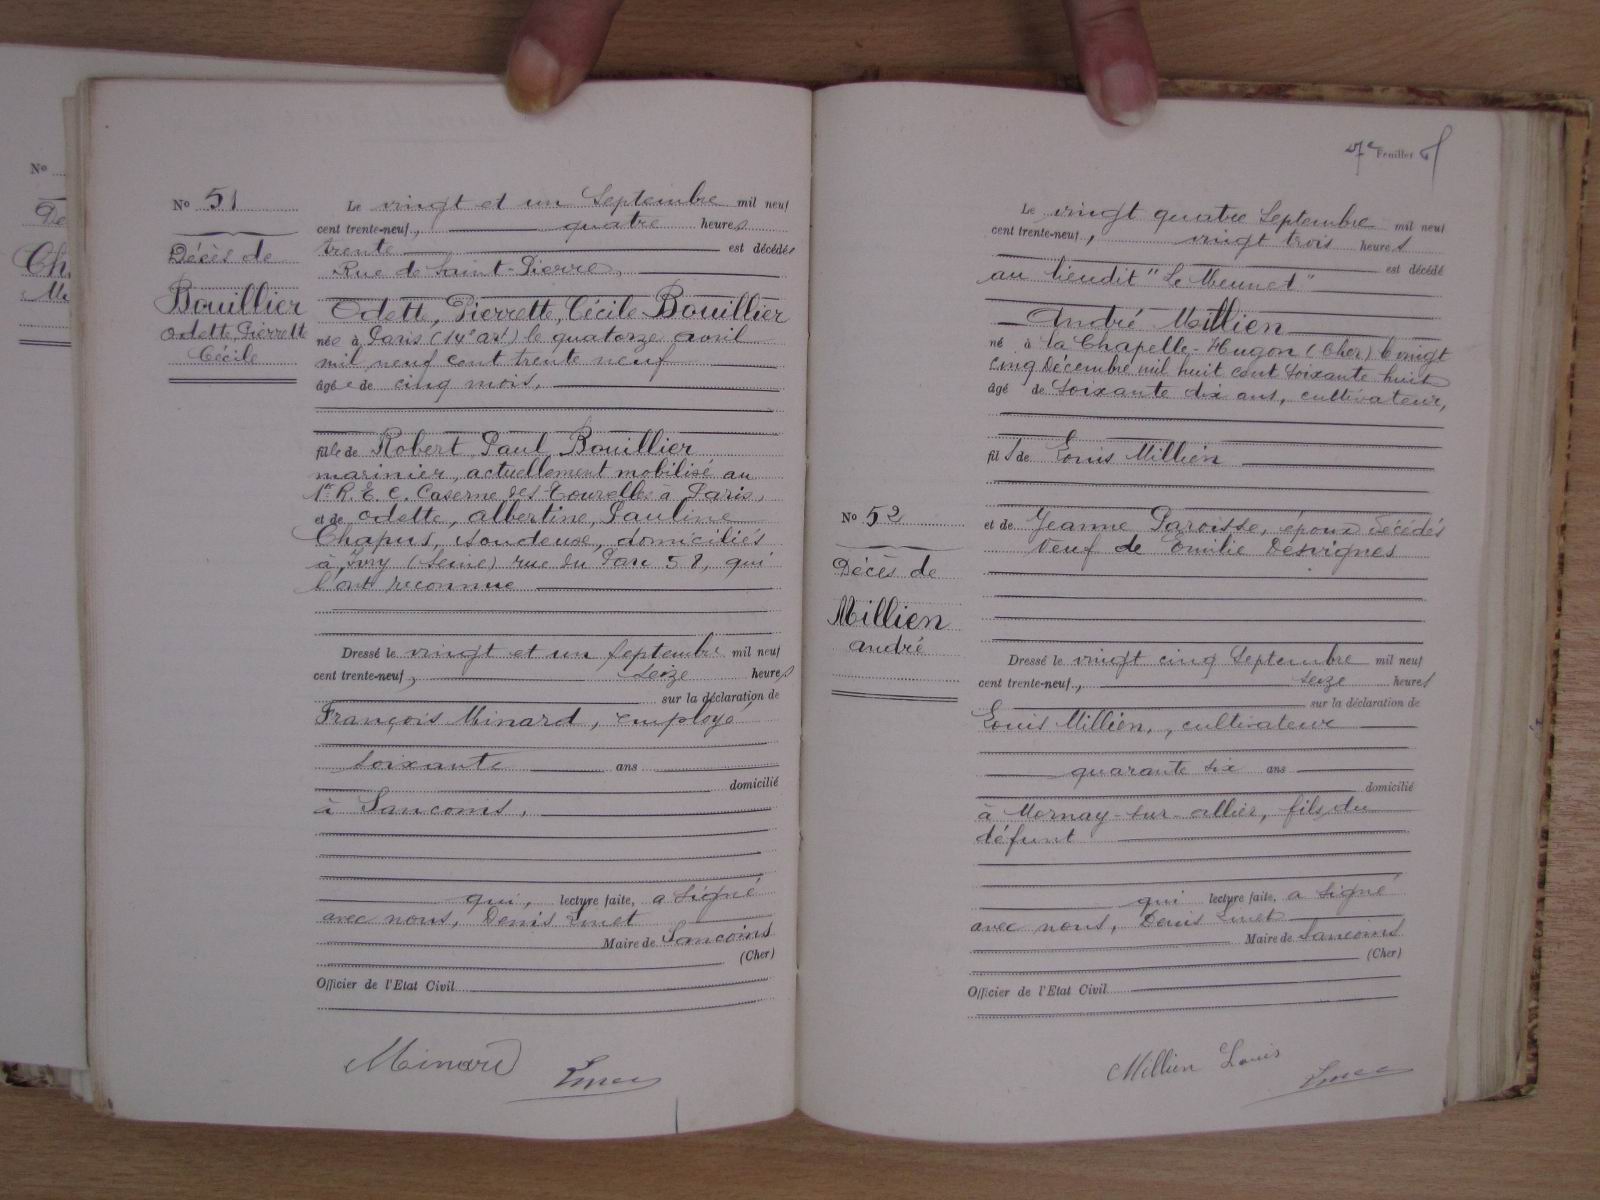 No
De
Ch
Mi
No 51
Décès de
Bouillier
Odette, Pierrette
Cécile
Le vingt et un Septembre mil neuf
cent trente-neuf, quatre heures
trente est décédée
Rue de Saint-Pierre,
Odett, Pierrette, Cécile Bouillier
née à Paris (14e art) le quatorze avril
mil neuf cent trente neuf
âgée de cinq mois,
fille de Robert Paul Bouillier
marinier, actuellement mobilisé au
1er R.E.C. Caserne des Tourelles à Paris,
et de Odette, Albertine, Pauline
Chapus, soudeuse, domiciliés
à Ivry (Seine) rue du Parc 58, qui
l'ont reconnue
Dressé le vingt et un Septembre mil neuf
cent trente-neuf, seize heures
sur la déclaration de
François Minard, employé
soixante ans
domicilié
à Sancoins,
qui, lecture faite, a signé
avec nous, Denis
Maire de Sancoins
(Cher)
Officier de l'Etat Civil
Minard
7e Feuillet
Le vingt quatre Septembre mil neuf
cent trente-neuf, vingt trois heures
est décédé
au lieudit "Le Meunet"
André Millien
né à la Chapelle-Hugon (Cher) le vingt
cinq Décembre mil huit cent soixante huit
âgé de soixante dix ans, cultivateur,
fils de Louis Millien
No 52
Décès de
Millien
André
et de Jeanne Paroisse, époux décédés
Veuf de Emilie Desvignes
Dressé le vingt cinq Septembre mil neuf
cent trente-neuf, seize heures
sur la déclaration de
Louis Millien, cultivateur
quarante six ans
domicilié
à Mornay-sur-Allier, fils du
défunt
qui lecture faite, a signé
avec nous, Denis
Maire de Sancoins
(Cher)
Officier de l'Etat Civil
Millien Louis